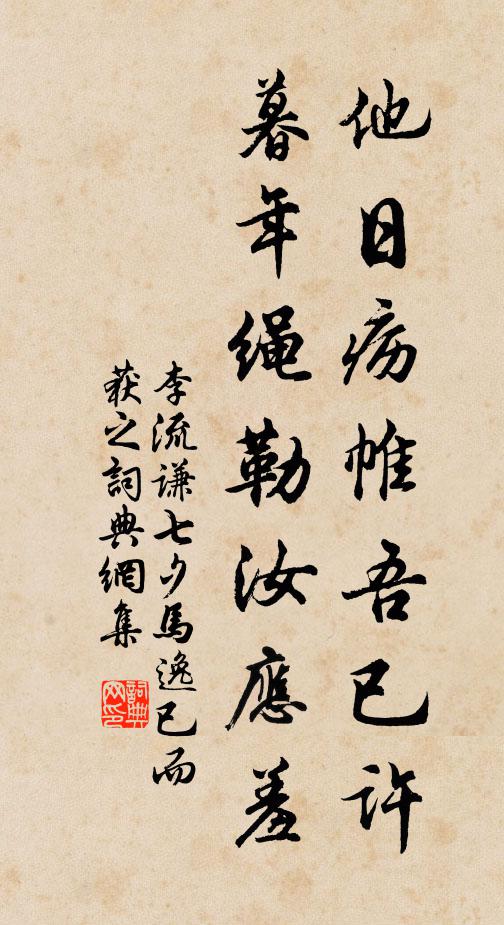 他日疡帷吾已許
暮年繩勒汝應羞
李流謙七夕馬逸已而
获之詞典網集
詞典
网印